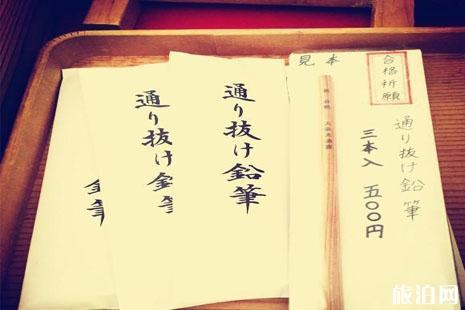 見本
合格祈願
通り抜け鉛筆
三本入 五〇〇円
通り抜け鉛筆
通り抜け鉛筆
鉛筆
旅泊网